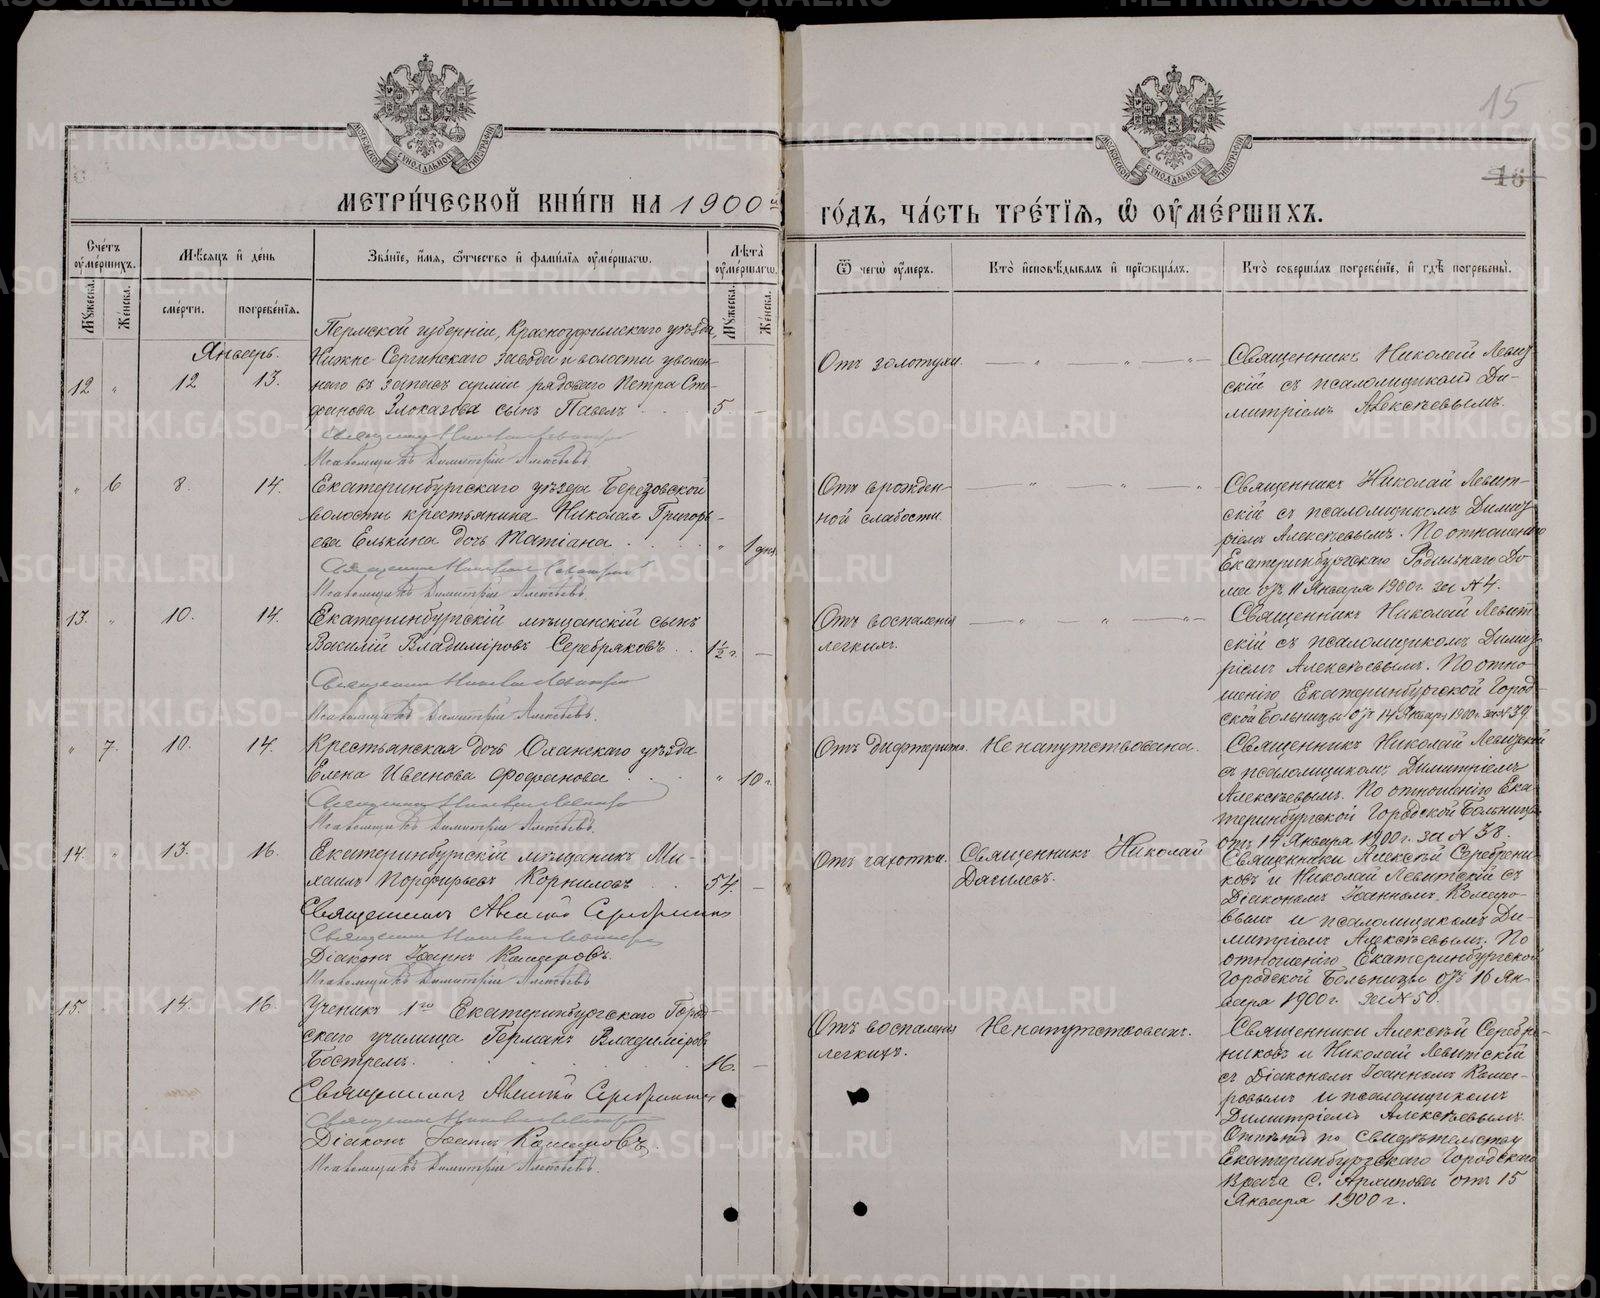 15
16
МОСКОВСКОЙ СУНОДАЛЬНОЙ ТИПОГРАФІИ
МОСКОВСКОЙ СУНОДАЛЬНОЙ ТИПОГРАФІИ
МЕТРИ́ЧЕСКОЙ КНИ́ГИ НА 1900й
ГО́ДЪ, ЧА́СТЬ ТРЕ́ТІѦ, Ѡ҆ ОУ҆МЕ́РШИХЪ.
Сче́тъ оу҆ме́ршихъ.
Мꙋ́жеска.
Же́нска.
Мѣ́сѧцъ и҆ де́нь
сме́рти.
погребе́нїѧ.
Зва́нїе, и҆́мѧ, ѻ҆́тчество и҆ фами́лїѧ оу҆ме́ршагѡ.
Лѣ́та оу҆ме́ршагѡ.
Мꙋ́жеска.
Же́нска.
Ѿ чегѡ̀ оу҆́меръ.
Кто̀ и҆сповѣ́дывалъ и҆ прїѡбща́лъ.
Кто̀ соверша́лъ погребе́нїе, и҆ гдѣ̀ погребены̀.
Январь.
12 " 12 13.
Пермской губерніи, Красноуфимскаго уѣзда,
Нижне-Сергинскаго завода и волости уволен-
наго въ запасъ арміи рядоваго Петра Сте-
фанова Злоказова сынъ Павелъ . . 5 —
Священникъ Николай Левитскій
Псаломщикъ Димитрій Алексѣевъ.
Отъ золотухи. — " — " — " —
Священникъ Николай Левит-
скій съ псаломщикомъ Ди-
митріемъ Алексѣевымъ.
" 6 8. 14.
Екатеринбургскаго уѣзда Березовской
волости крестьянина Николая Григорь-
ева Елькина дочь Татіана . . . . " 1 дня.
Священникъ Николай Левитскій
Псаломщикъ Димитрій Алексѣевъ.
Отъ врожден-
ной слабости.
— " — " — "
Священникъ Николай Левит-
скій съ псаломщикомъ Димит-
ріемъ Алексѣевымъ. По отношенію
Екатеринбургскаго Родильнаго До-
ма отъ 11 Января 1900 г. за № 4.
13. " 10. 14.
Екатеринбургскій мѣщанскій сынъ
Василій Владиміровъ Серебряковъ . . 1½ г. —
Священникъ Николай Левитскій
Псаломщикъ Димитрій Алексѣевъ.
Отъ воспаленія
легкихъ.
— " — " — " —
Священникъ Николай Левит-
скій съ псаломщикомъ Димит-
ріемъ Алексѣевымъ. По отно-
шенію Екатеринбургской Город-
ской Больницы отъ 14 Января 1900 г. за № 39.
" 7. 10. 14.
Крестьянская дочь Оханскаго уѣзда
Елена Иванова Фофанова . . . " 10 г.
Священникъ Николай Левитскій
Псаломщикъ Димитрій Алексѣевъ.
Отъ дифтерита. Не напутствована.
Священникъ Николай Левитскій
съ псаломщикомъ Димитріемъ
Алексѣевымъ. По отношенію Ека-
теринбургской Городской Больницы
отъ 14 Января 1900 г. за № 38.
14. " 13. 16.
Екатеринбургскій мѣщанинъ Ми-
хаилъ Порфирьевъ Корниловъ . . 54. —
Священникъ Алексій Серебренниковъ
Священникъ Николай Левитскій
Діаконъ Іоаннъ Комаровъ.
Псаломщикъ Димитрій Алексѣевъ
Отъ чахотки.
Священникъ Николай
Священники Алексѣй Серебрени-
ковъ и Николай Левитскій съ
Діакономъ Іоанномъ Комаро-
вымъ и псаломщикомъ Ди-
митріемъ Алексѣевымъ. По
отношенію Екатеринбургской
Городской Больницы отъ 16 Ян-
варя 1900 г. за № 50.
15. 14. 16.
Ученикъ 1го Екатеринбургскаго Город-
скаго училища Германъ Владиміровъ
Бострем. . . . . . 16. —
Священникъ Алексій Серебренниковъ
Священникъ Николай Левитскій
Діаконъ Іоаннъ Комаровъ.
Псаломщикъ Димитрій Алексѣевъ.
Отъ воспаленія
легкихъ.
Не напутствованъ.
Священники Алексѣй Серебре-
никовъ и Николай Левитскій
съ Діакономъ Іоанномъ Кома-
ровымъ и псаломщикомъ
Димитріемъ Алексѣевымъ.
Отпѣтъ по свидѣтельству
Екатеринбургскаго Городскаго
Врача С. Архипова отъ 15
Января 1900 г.
METRIKI.GASO-URAL.RU